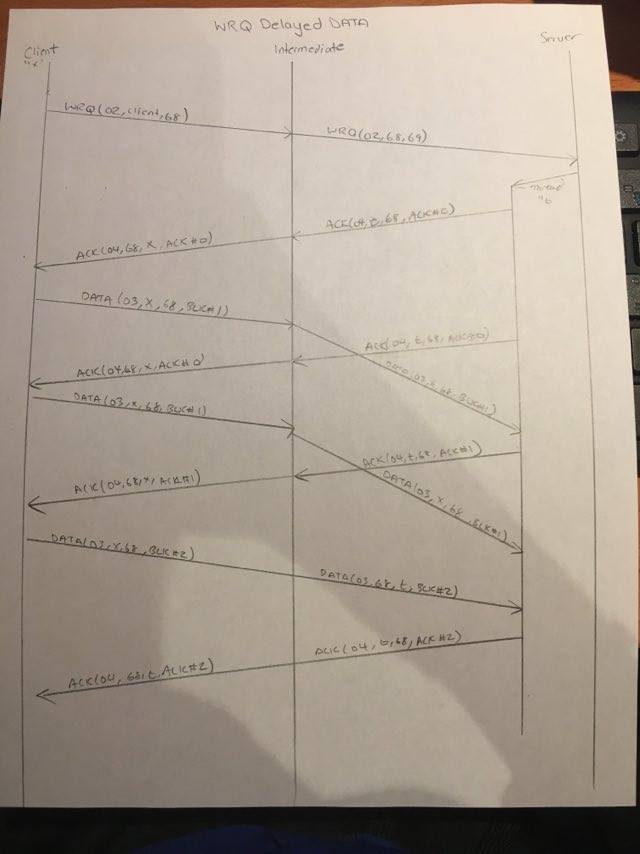 WRQ Delayed DATA
Client Intermediate Server
"x"
WRQ(02,client,68)
WRQ(02,68,69)
Thread
"t"
ACK(04,t,68,ACK#0)
ACK(04,68,x,ACK#0)
DATA(03,x,68,BLK#1)
ACK(04,t,68,ACK#0)
ACK(04,68,x,ACK#0)
DATA(03,t,68,BLK#1)
DATA(03,x,68,BLK#1)
ACK(04,t,68,ACK#1)
ACK(04,68,x,ACK#1)
DATA(03,x,68,BLK#1)
DATA(03,x,68,BLK#2)
DATA(03,68,t,BLK#2)
ACK(04,t,68,ACK#2)
ACK(04,68,t,ACK#2)